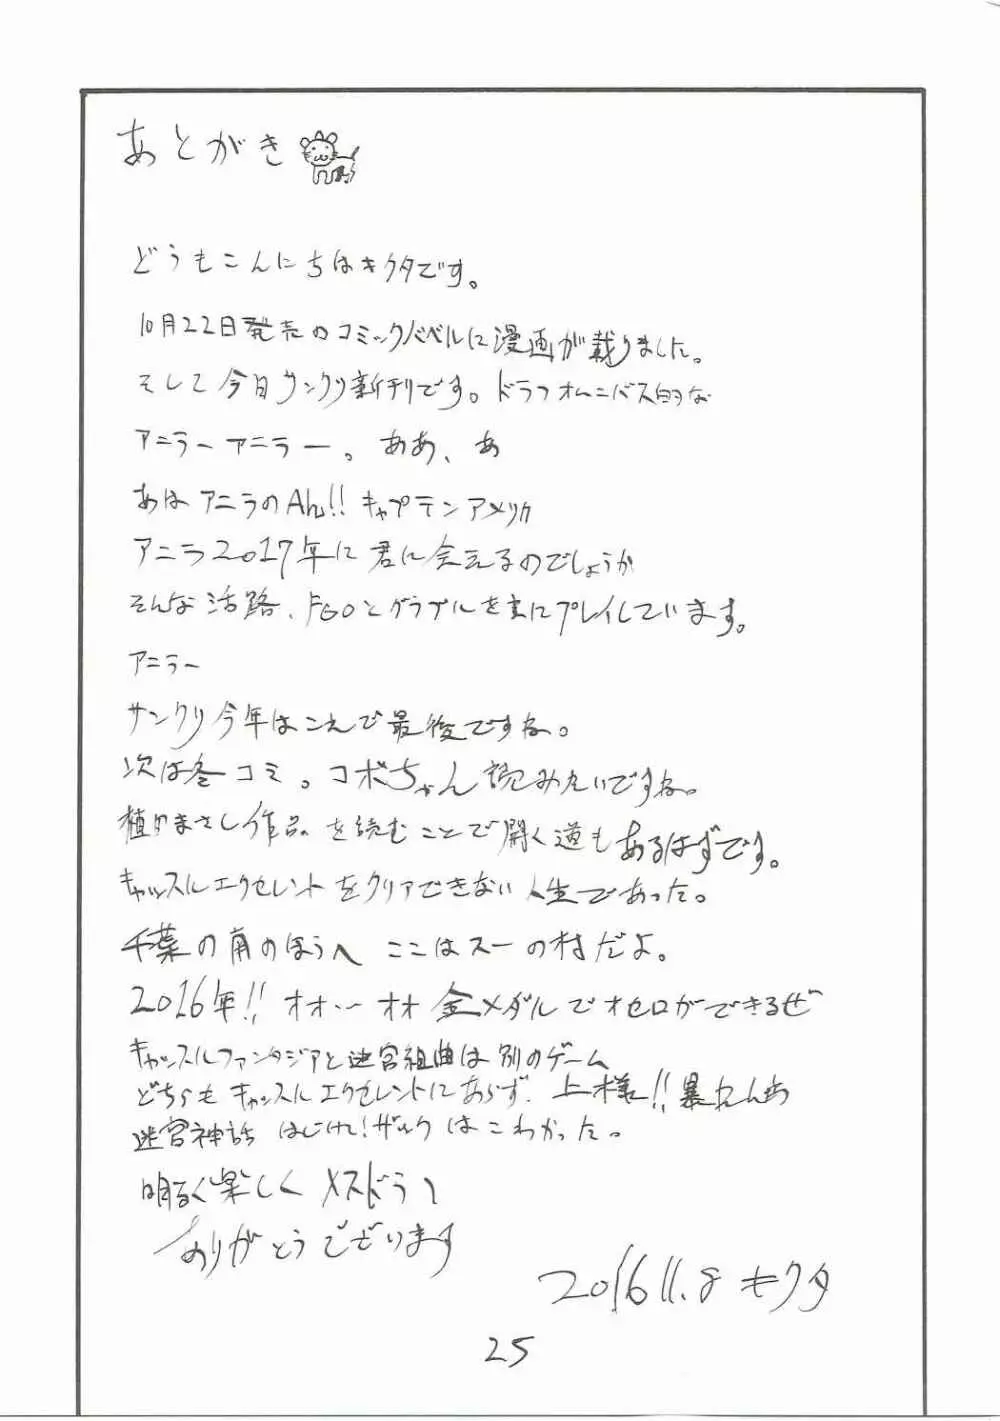 あとがき
どうもこんにちはキクタです。
10月22日発売のコミックバベルに漫画が載りました。
そして今日サンクリ新刊です。ドラフオムニバス的な
アニラーアニラー。ああ、あ
あはアニラのAh!! キャプテンアメリカ
アニラ2017年に君に会えるのでしょうか
そんな活路、FGOとグラブルを主にプレイしています。
アニラー
サンクリ今年はこれで最後ですね。
次は冬コミ。コボちゃん読みたいですね。
植田まさし作品を読むことで開く道もあるはずです。
キャッスルエクセレントをクリアできない人生であった。
千葉の南のほうへ ここはスーの村だよ。
2016年!! オオ…オオ 金メダルでオセロができるぜ
キャッスルファンタジアと迷宮組曲は別のゲーム
どちらもキャッスルエクセレントにあらず。上様!! 暴れんぁ
迷宮神話 はじけて!ザルクはこわかった。
明るく楽しくメスドラヘ
ありがとうでございます
2016 11.8 キクタ
25